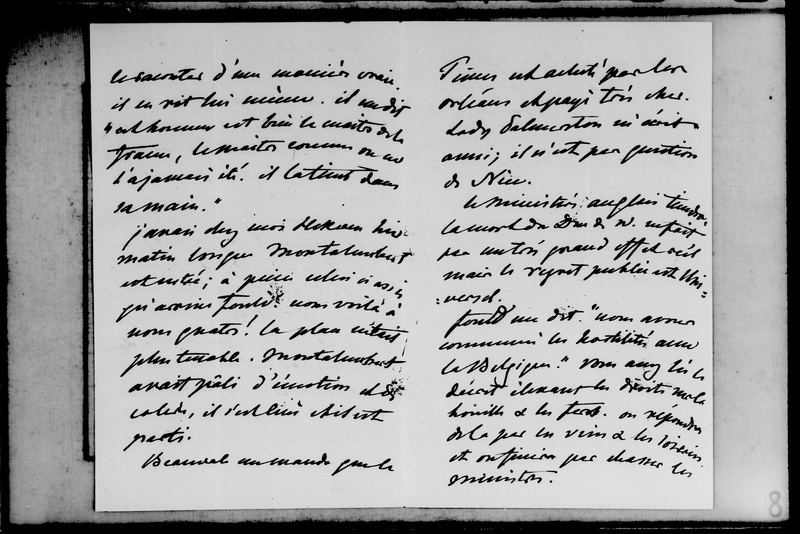 le raconter d'une manière vraie.
il en rit lui même. il me dit
"cet homme est bien le maître de la
France, le maître comme on ne
l'a jamais été. il la tient dans
sa main."
j'avais chez moi hier
matin lorsque Montalembert
est entré; à peine celui ci assis
qu'arrive Fould. nous voilà à
nous quatre! la place n'était
plus tenable. Montalembert
avait pâli d'émotion et de
colère, il s'est levé et il est
parti.
Beauval me mande que le
Times est acheté par les
orléans et payé très cher.
Lady Palmerston m'écrit
aussi; il n'est pas question
de Nice.
le ministère anglais tiendra
la mort du Duc de W. ne fait
pas un très grand effet
mais le regret public est Uni=
=versel.
Fould me dit. "nous avons
commencé les hostilités avec
la Belgique." vous avez lu le
décret élevant les droits sur la
houille & les fers. on répondra
de là par les vins & les soieries.
et on finira par chasser les
ministres.
8